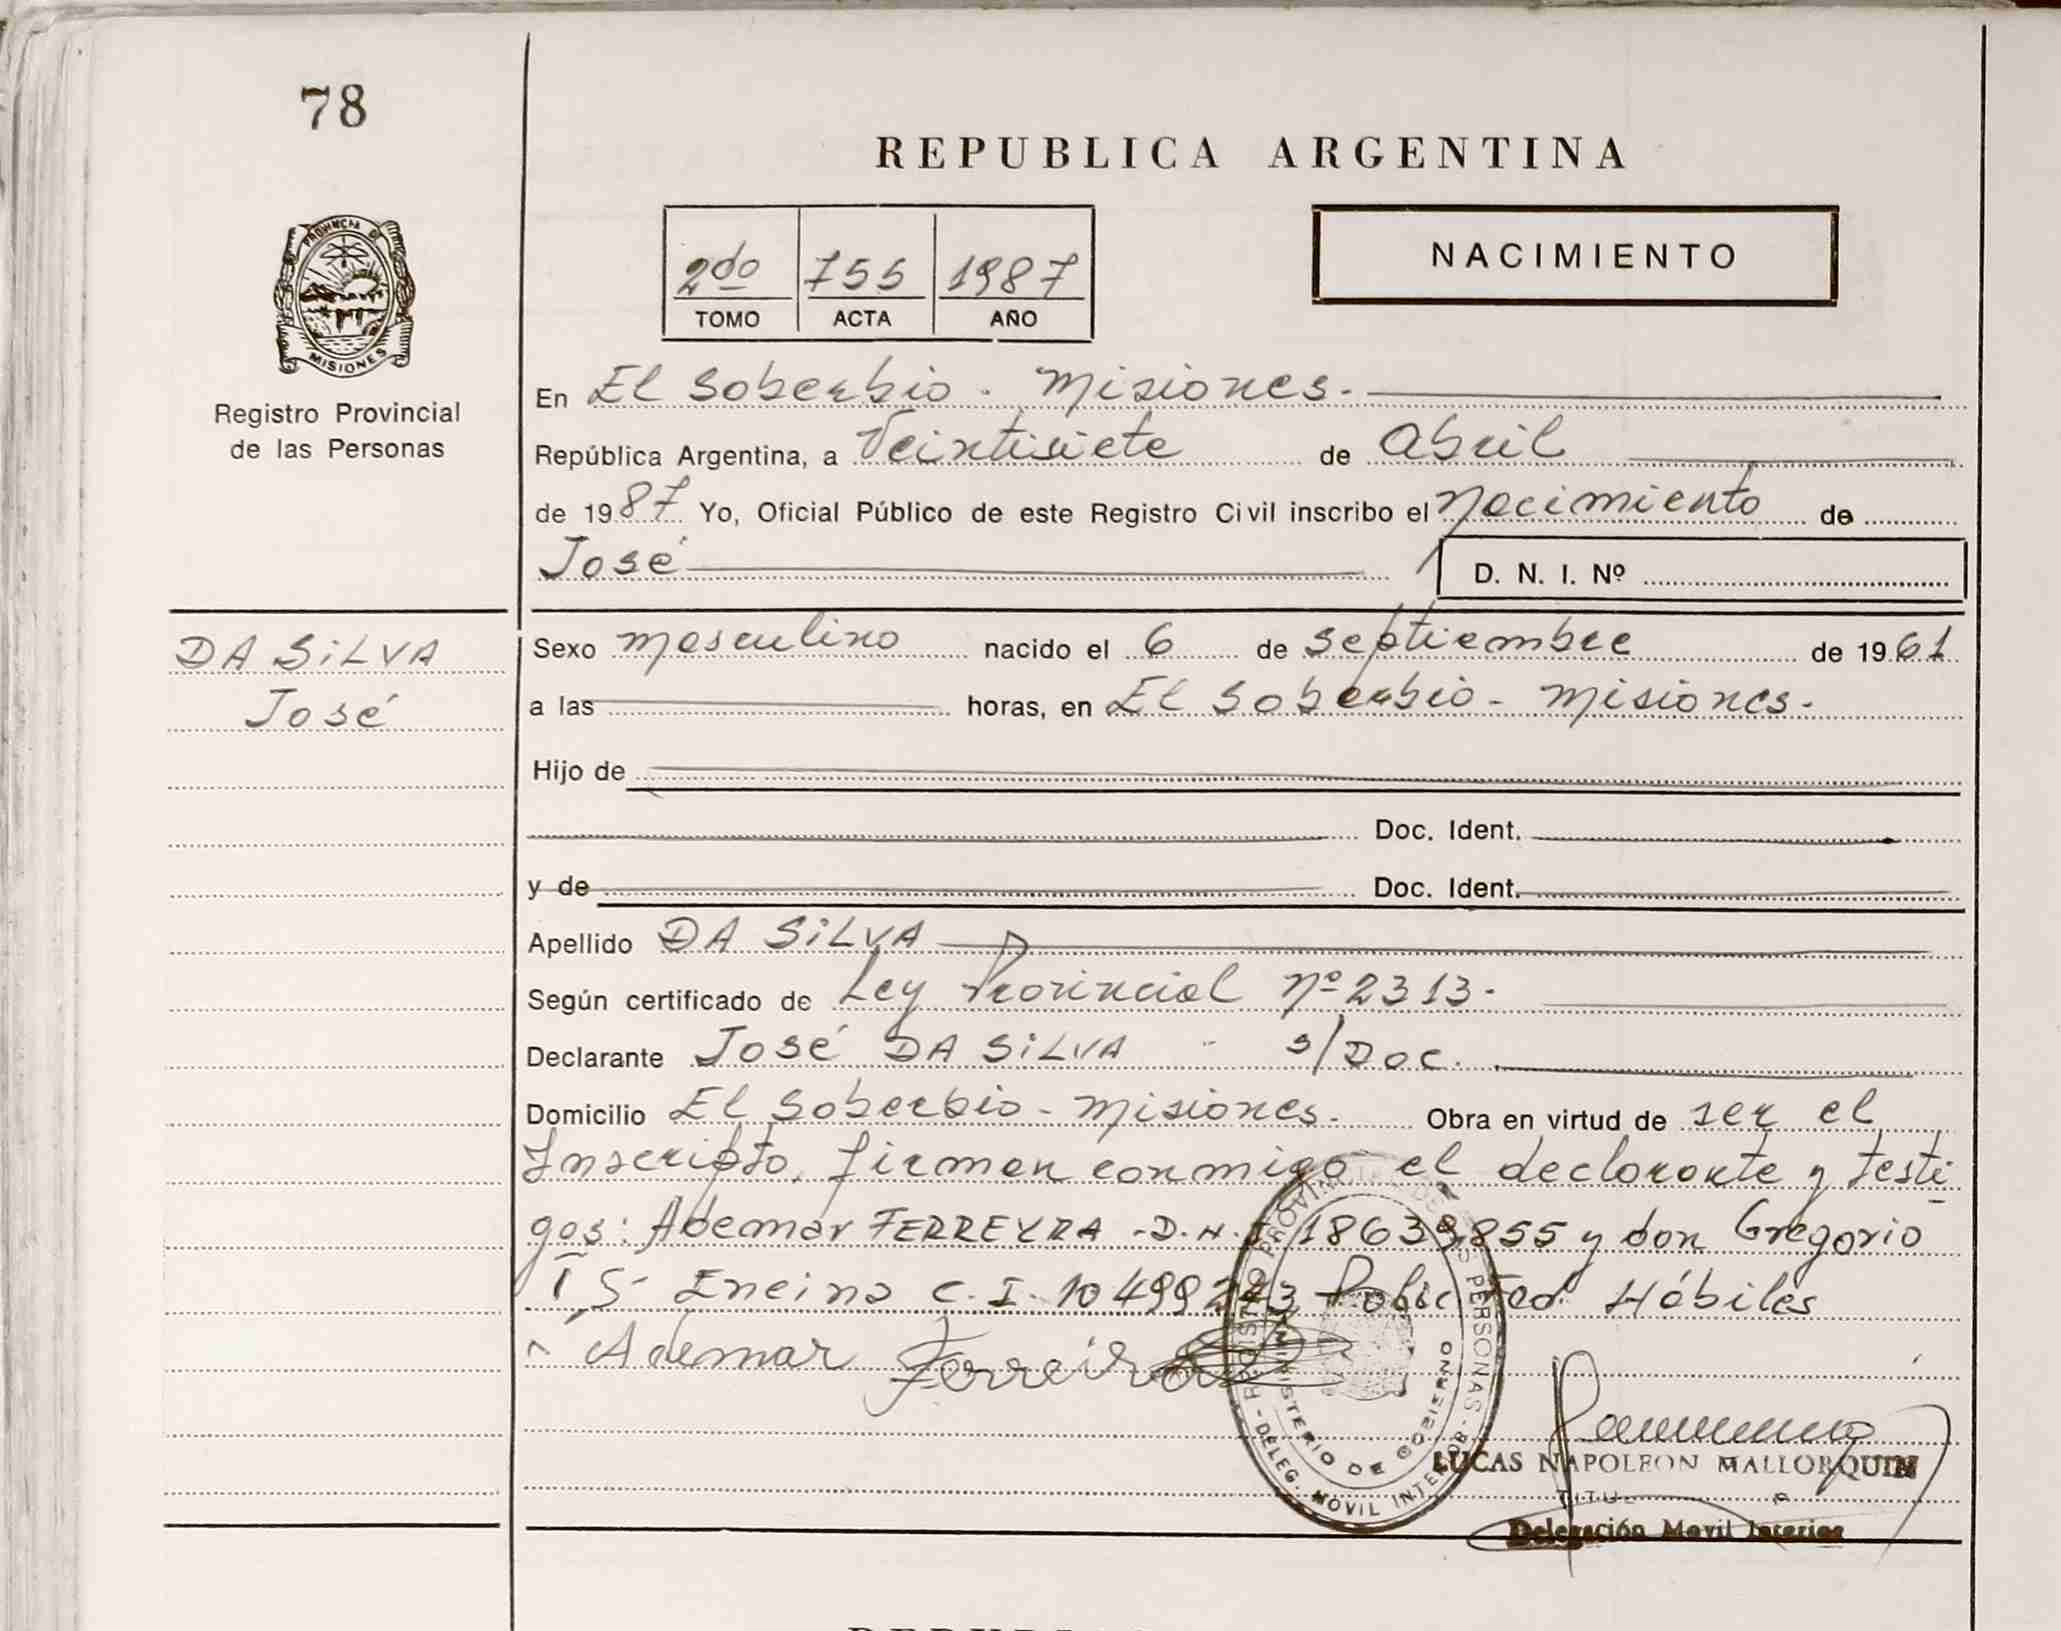 78
REPUBLICA ARGENTINA
2do 755 1987
TOMO ACTA AÑO
NACIMIENTO
PROVINCIA D
MISIONES
Registro Provincial
de las Personas
En El Soberbio - Misiones.
República Argentina, a Veintisiete de Abril
de 1987 Yo, Oficial Público de este Registro Civil inscribo el Nacimiento de
José D. N. I. Nº
DA SiLVA
José
Sexo masculino nacido el 6 de septiembre de 1961
a las horas, en El Soberbio - Misiones.
Hijo de
Doc. Ident.
y de Doc. Ident.
Apellido DA SiLVA
Según certificado de Ley Provincial Nº 2313.
Declarante José DA SiLVA - s/Doc.
Domicilio El Soberbio - Misiones. Obra en virtud de ser el
Inscripto, firman conmigo el declarante y testi
gos: Ademar FERREYRA - D.N.I. 18639855 y don Gregorio
Encina C.I. 10499243 Polic Fed. Hábiles
Ademar Ferreira
REGISTRO PROVINCIAL DE LAS PERSONAS - DELEG. MOVIL INTERIOR
MINISTERIO DE GOBIERNO
LUCAS NAPOLEON MALLORQUIN
Delegación Movil Interior